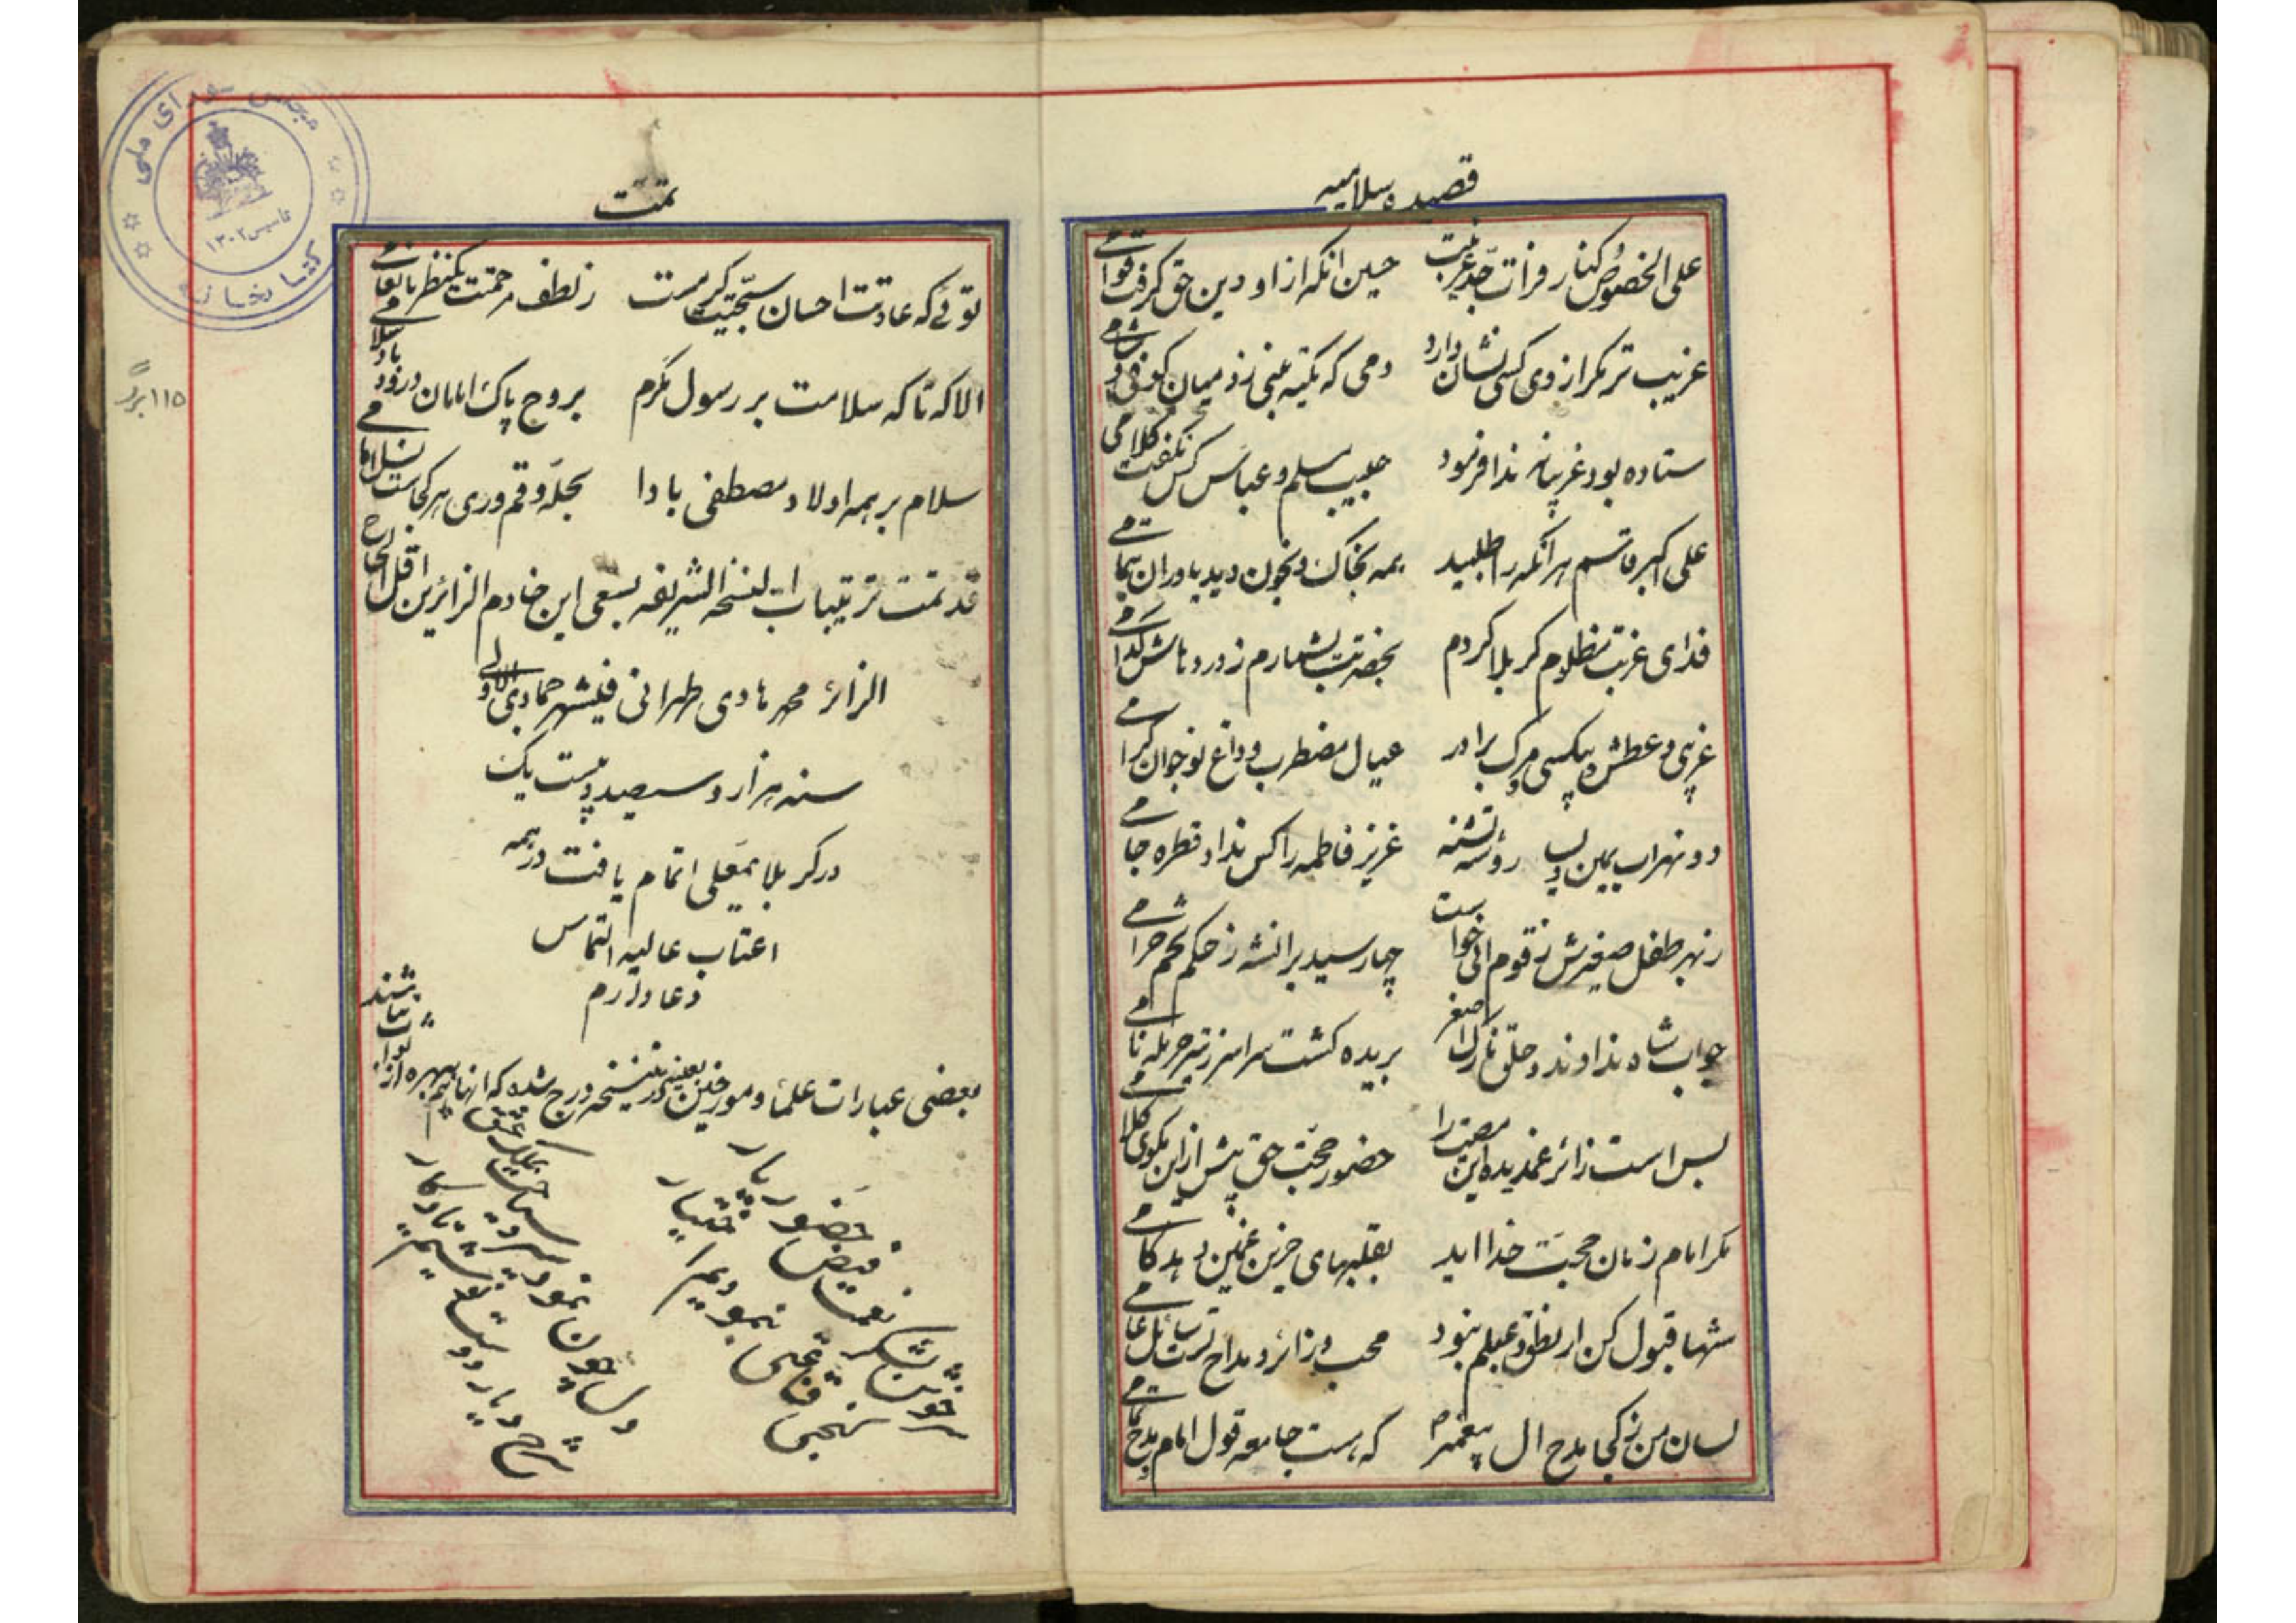 قصیده سلامیه
علی الخصوص کنار فرات جد غریبت حسین انکه از او دین حق کرفت قوامی
غریب تر مکر از وی کسی نشان دارد دمی که تکیه بنی زد میان کوفی و شامی
ستاده بود غریبانه ندا فرمود حبیب مسلم و عباس کس نکفت کلامی
علی اکبر و قاسم هر انکه را طلبید همه بخاک و بخون دید یاوران بتمامی
فدای غربت مظلوم کربلا کردم بحضرتت بشمارم ز دردهاش کدامی
غریبی و عطش و بیکسی و مرک برادر عیال مضطرب و داغ نوجوان کرامی
دو نهر اب یمین و یسارو تشنه عزیز فاطمه را کس نداد قطره جامی
ز بهر طفل صغیرش ز قوم ابی خواست چها رسید بر انشه ز حکم حرامی
جواب شاه ندادند و حلق نازک اصغر بریده کشت سراسر ز تیر حرمله نامی
بس است زائر غمدیده این مصیبت را حضور حجت حق بیش از این مکوی کلامی
مکر امام زمان حجت خدا اید بقلبهای حزین غمین دهد کامی
شها قبول کن ار نطق و علم نبود محب و زائر و مداح تست سائل عامی
لسان من ز کجا مدح ال پیغمبر که هست جامعه قول امام مدح تمامی
تمت
توئی که عادتت احسان سجیتت کرمست ز لطف مرحمت یکنظر بما
الا که تا که سلامت بر رسول مکرم بروح پاک امامان درود باد سلامی
سلام بر همه اولاد مصطفی بادا بحله و قم و ری هر کجاست نسل امامی
قد تمت ترتیبات النسخه الشریفه بسعی این خادم الزائرین اقل الحاج
الزائر محمد هادی طهرانی فیشهر جمادی الاولی
سنه هزار و سیصد و بیست یک
در کربلا معلی اتمام یافت در همه
اعتاب عالیه التماس
دعا دارم
بعضی عبارات علماء و مورخین در نسخه درج شده که انها هم بهره از ثواب باشند
خوش بشکر نعمت فیض حضور یار
دلسا چون نمود سیر و سیاحت
شرح دیار دوست
۱۱۵ برگ
مجلس شورای ملی
کتابخانه
تاسیس ۱۳۰۲